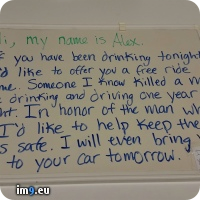 i, my name is Alex..
you have been drinking tonight
d like to offer you a free ride
me. Someone I know killed a m
drinking and driving one year
In honor of the man wh
I'd like to help keep the
s safe. I will even bring
to your car tomorrow.
img9.eu